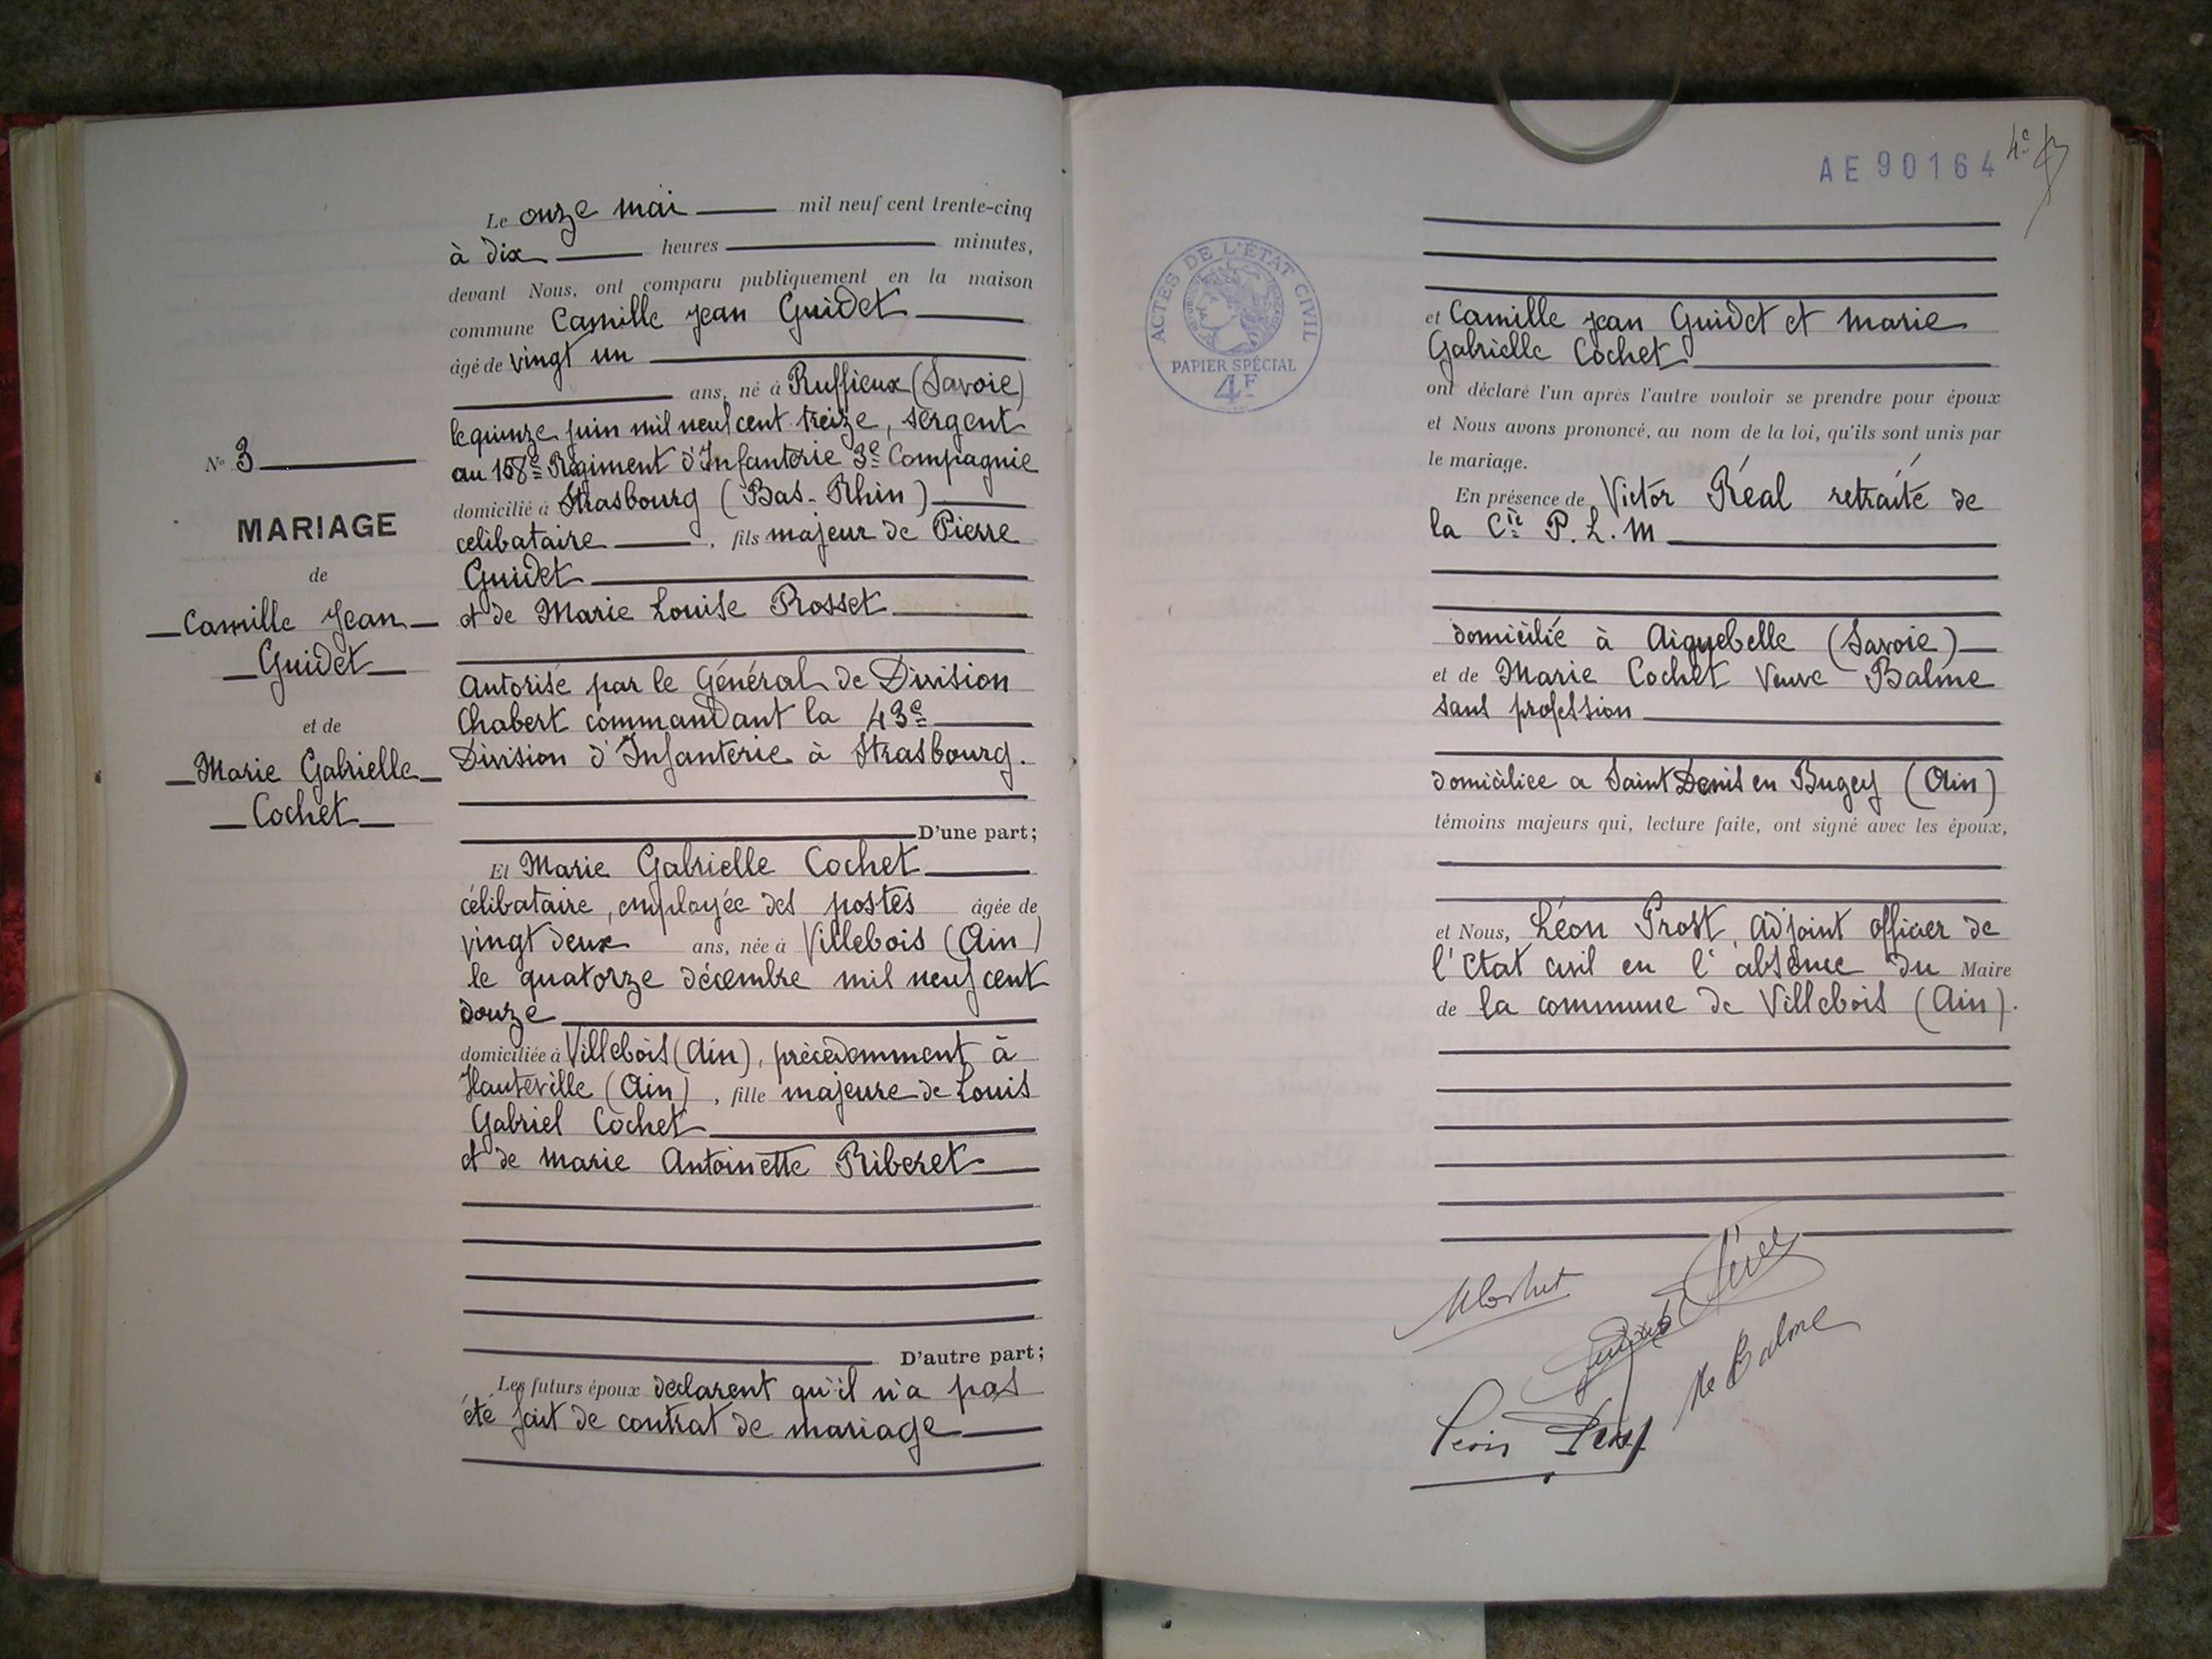 Le onze mai mil neuf cent trente-cinq
à dix heures minutes,
devant Nous, ont comparu publiquement en la maison
commune Camille Jean Guidet
âgé de vingt un
ans, né à Ruffieux (Savoie)
le quinze juin mil neuf cent treize, sergent
au 158e Régiment d'Infanterie 3e Compagnie
domicilié à Strasbourg (Bas-Rhin)
celibataire, fils majeur de Pierre
Guidet
et de Marie Louise Rosset
Autorisé par le Général de Division
Chabert commandant la 43e
Division d'Infanterie à Strasbourg.
D'une part;
Et Marie Gabrielle Cochet
célibataire, employée des postes âgée de
vingt deux ans, née à Villebois (Ain)
le quatorze décembre mil neuf cent
douze
domiciliée à Villebois (Ain), précédemment à
Hauteville (Ain), fille majeure de Louis
Gabriel Cochet
et de Marie Antoinette Riberet
D'autre part;
Les futurs époux déclarent qu'il n'a pas
été fait de contrat de mariage
No 3
MARIAGE
de
Camille Jean
Guidet
et de
Marie Gabrielle
Cochet
AE 90164
ACTES DE L'ÉTAT CIVIL
PAPIER SPÉCIAL
4F
et Camille Jean Guidet et Marie
Gabrielle Cochet
ont déclaré l'un après l'autre vouloir se prendre pour époux
et Nous avons prononcé, au nom de la loi, qu'ils sont unis par
le mariage.
En présence de Victor Réal retraité de
la Cie P.L.M
domicilié à Aiguebelle (Savoie)
et de Marie Cochet Veuve Balme
sans profession
domiciliée a Saint Denis en Bugey (Ain)
témoins majeurs qui, lecture faite, ont signé avec les époux,
et Nous, Léon Prost, Adjoint officier de
l'Etat civil en l'absence du Maire
de la commune de Villebois (Ain).
M Cochet
Guidet
Me Balme
Léon Prost